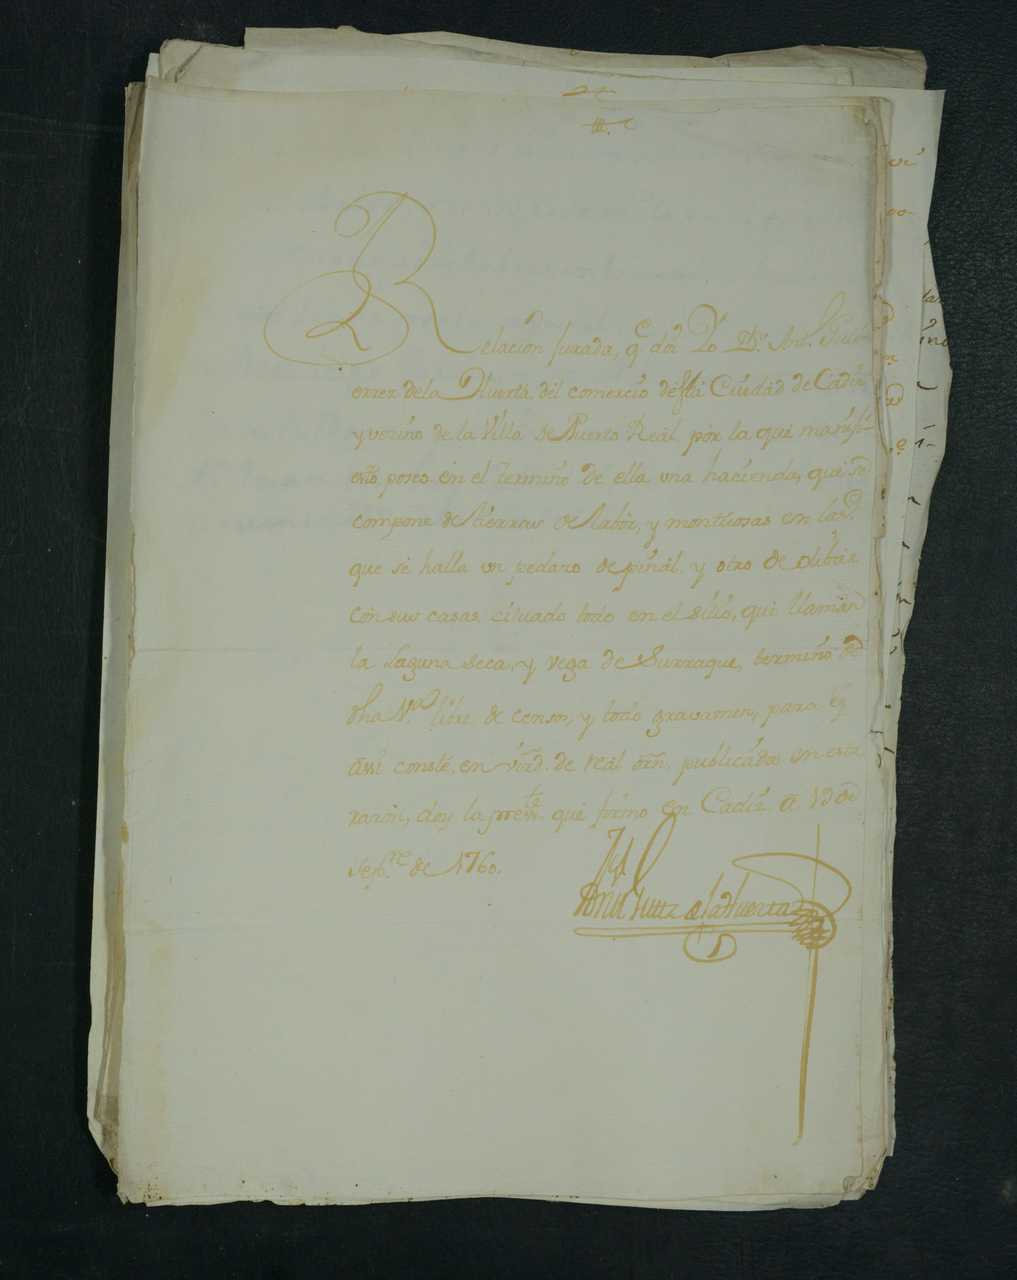 Relacion Jurada, q.e doi Yo D.n Ant.o Guti
errez de la Huerta del comercio desta Ciudad de Cadiz
y vezino de la Villa de Puerto Real por la que manifi
esto, poseo en el termino de ella una hacienda, que se
compone de tierras de labor, y montuosas en las q.e
que se halla un pedazo de pinal, y otro de olibar
con sus casas, cituado todo en el sitio, que llaman
la Laguna seca, y Vega de Surraque, termino de
dha V.a libre de censos, y todo gravamen, para q.e
assi conste, en virtd. de real orn. publicados en esta
razon, doy la pres.te que firmo en Cadiz a 13 de
Sep.re de 1760.
Ant.o Gutrz de la Huerta